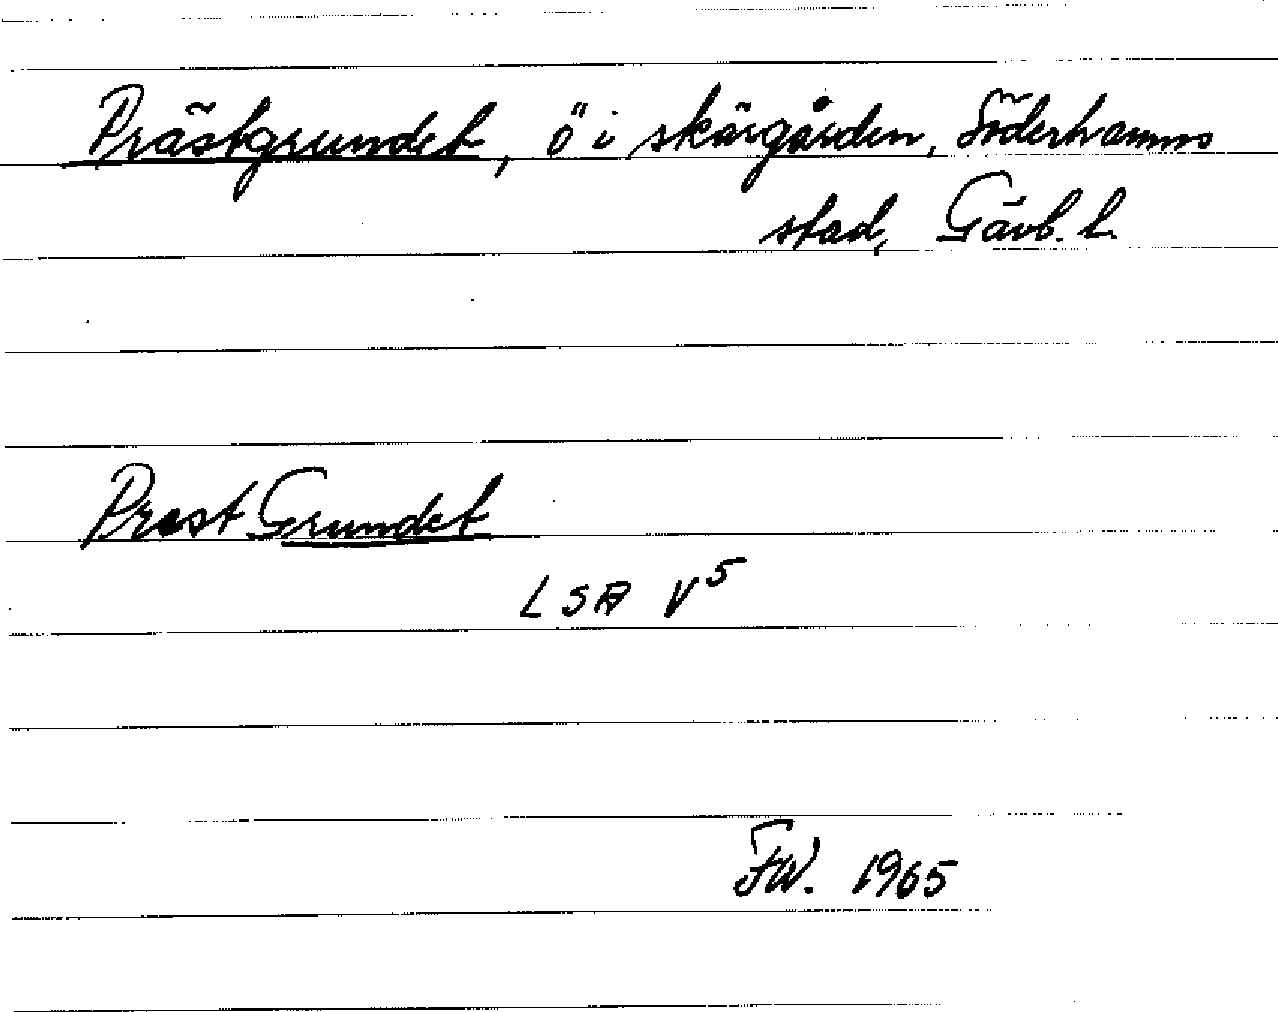 Prästgrundet, ö i skärgården, Söderhamns
stad, Gävb. L.
Prest Grundet
LSA V⁵
FW. 1965